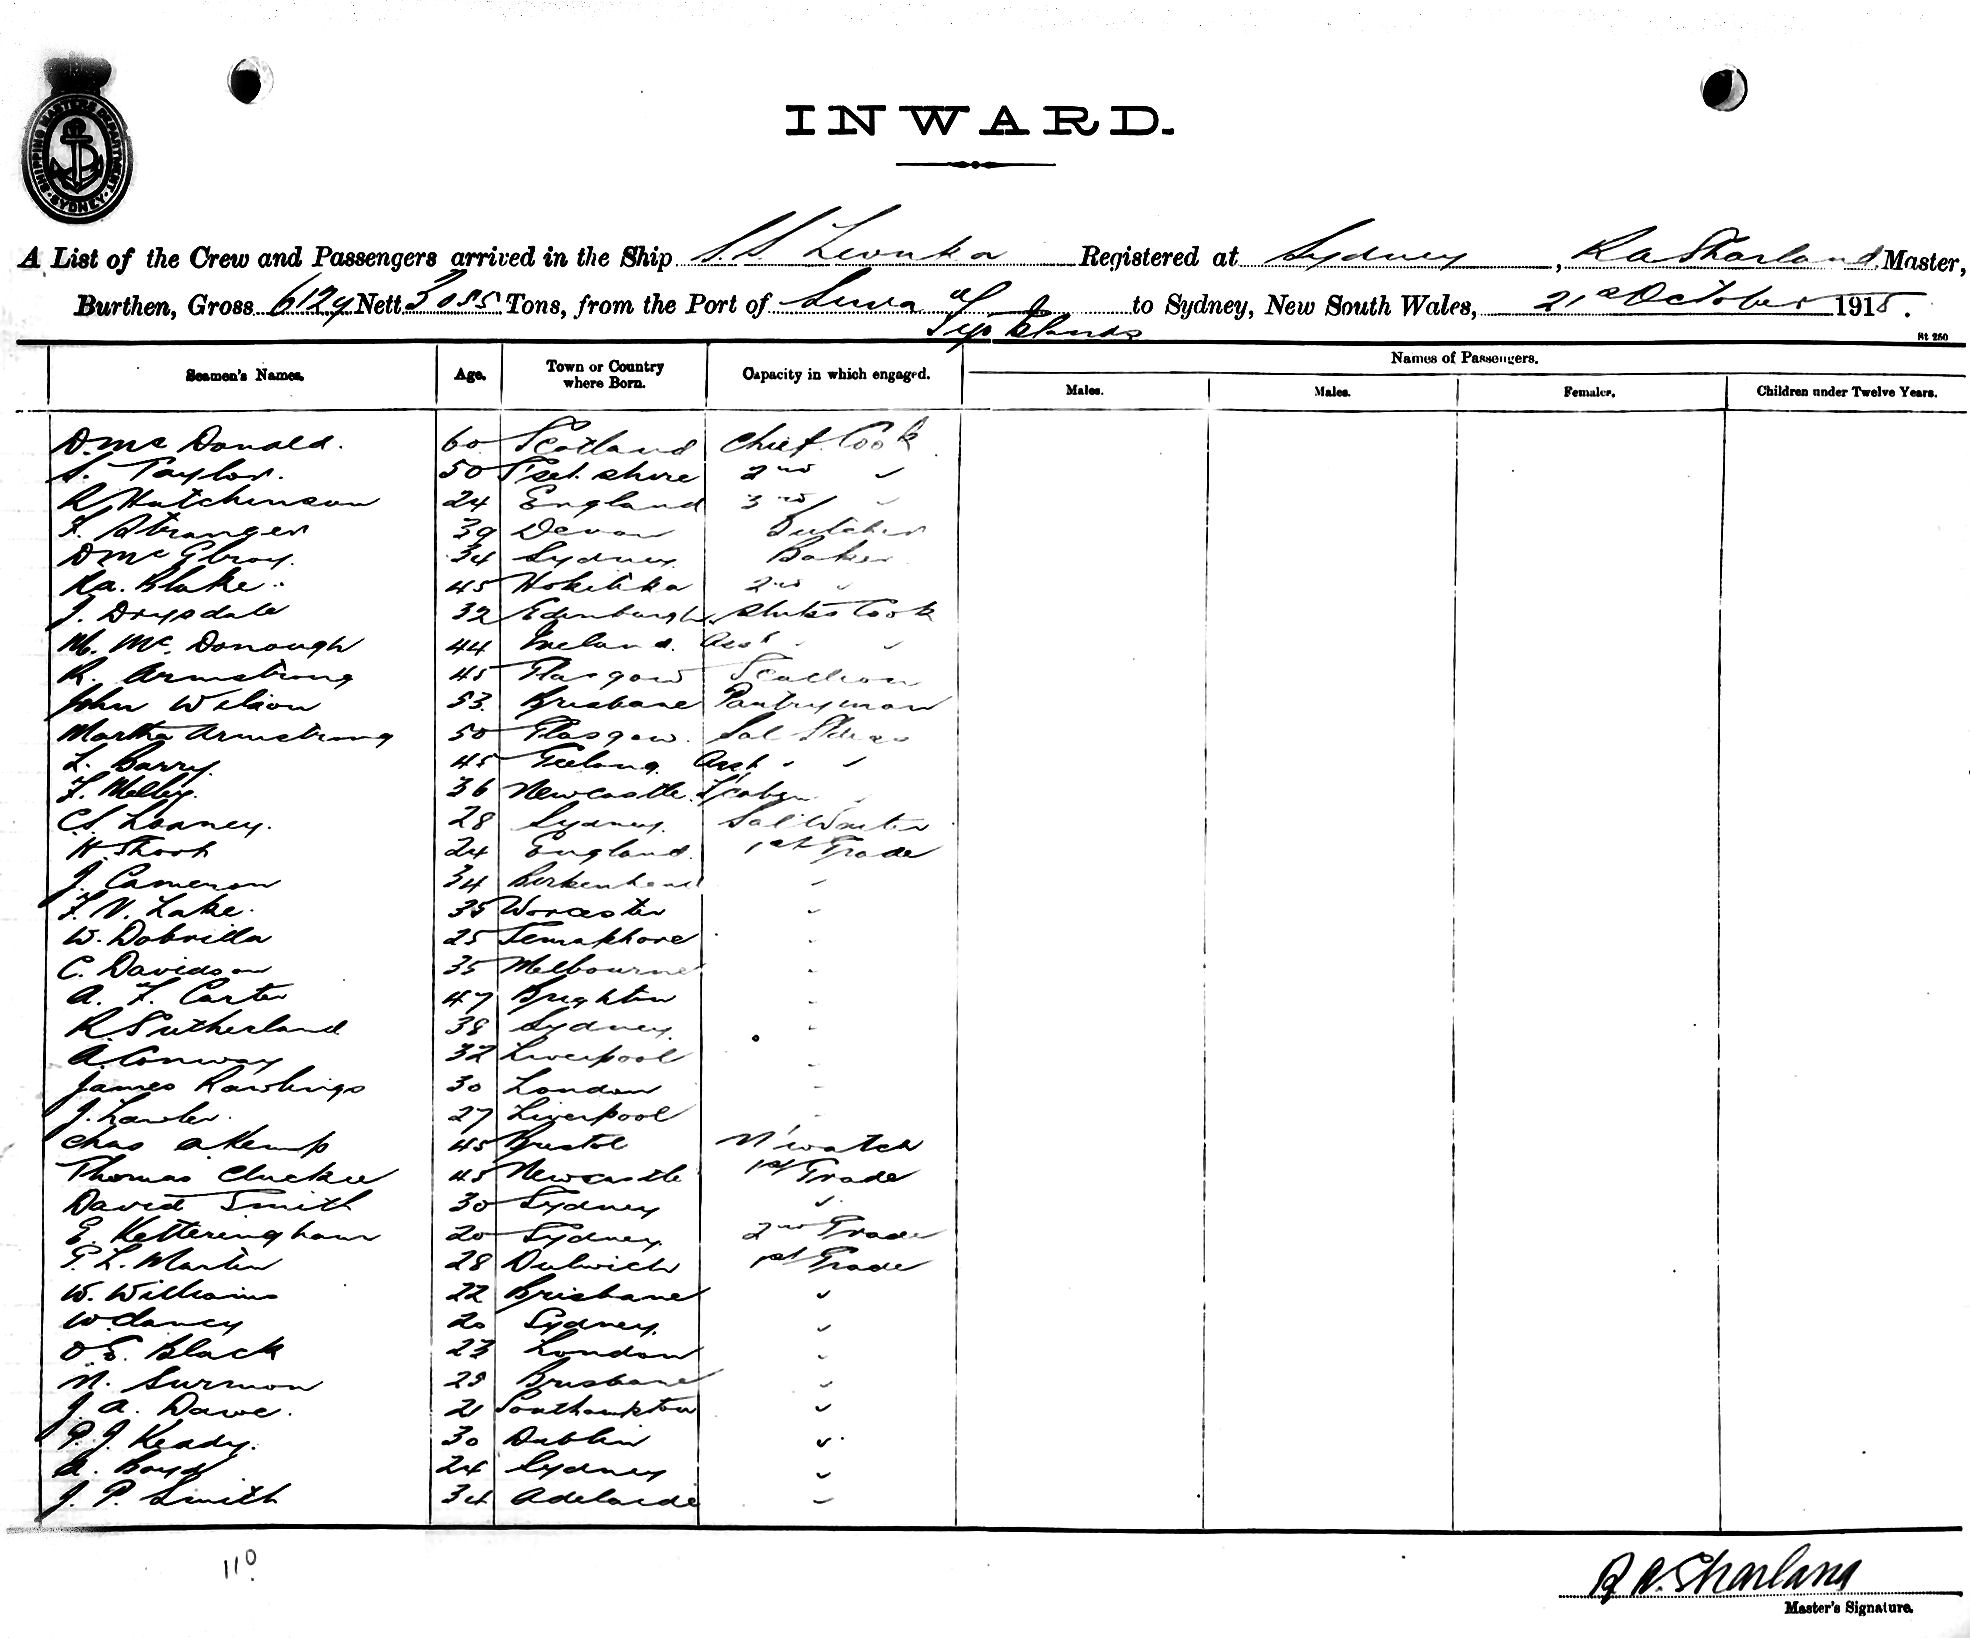 SHIPPING MASTERS DEPARTMENT
SYDNEY
INWARD.
A List of the Crew and Passengers arrived in the Ship S.S. Levuka Registered at Sydney, R A Sharland Master,
Burthen, Gross 6129 Nett 3055 Tons, from the Port of Suva & to Sydney, New South Wales, 21st October 1918.
Fiji Islands
St 250
Seamen's Names. Age. Town or Country where Born. Capacity in which engaged. Names of Passengers.
Males. Males. Females. Children under Twelve Years.
D. Mc Donald. 60 Scotland Chief Cook
S. Taylor. 50 2nd "
R Hutchinson 24 England 3rd "
F. Stranger 39 Devon Butcher
D Mc Elroy. 34 Sydney. Baker
R a. Blake. 45 Hokitika 2nd "
J. Drysdale 32 Edinburgh Cook
M. Mc. Donough 44 Ireland. Asst " "
R. Armstrong 45 Glasgow Scullion
John Wilson 53. Brisbane Pantryman
Martha Armstrong 50 Glasgow. Sal
L. Barry. 45 Geelong. Asst " "
F. 36 Newcastle.
C.S. Looney. 28 Sydney. Sal Waiter
H. Short 24 England. 1st Grade
J. Cameron 34 Birkenhead "
F. V. Lake. 35 Worcester "
W. Dobrilla 25 Semaphore "
C. Davidson 35 Melbourne "
A. F. Carter 47 Brighton "
R. Sutherland 38 Sydney. "
A. Conway 32 Liverpool "
James Rawlings 30 London "
J. Lawler. 27 Liverpool "
Chas a Kemp 45 Bristol N'watch
Thomas 45 Newcastle 1st Grade
David Smith 30 Sydney "
E. Ketteringham 20 Sydney. 2nd Grade
G. L. Martin 28 Dulwich 1st Grade
W. Williams 22 Brisbane "
W Clancy 20 Sydney. "
O. E. Black 23 London "
N. Surmon 28 Brisbane "
J. A. Dawe. 21 Southampton "
P. J. Keady. 30 Dublin "
A. Boyd 24 Sydney "
J. P. Smith 34 Adelaide "
110
R A. Sharland
Master's Signature.